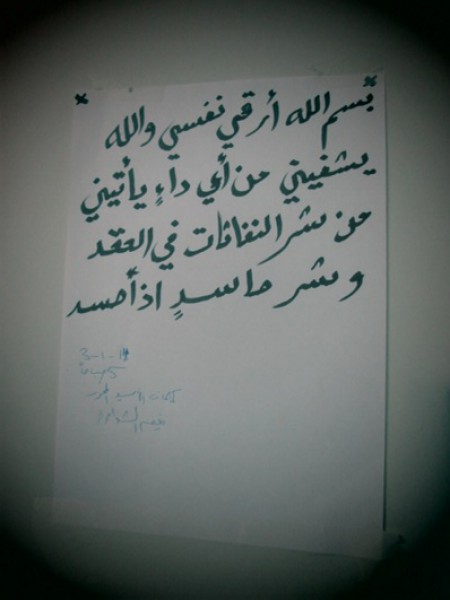 بسم الله أرقي نفسي والله
يشفيني من أي داءٍ يأتيني
من شر النفاثات في العقد
وشر حاسدٍ اذا حسد
3-1-14